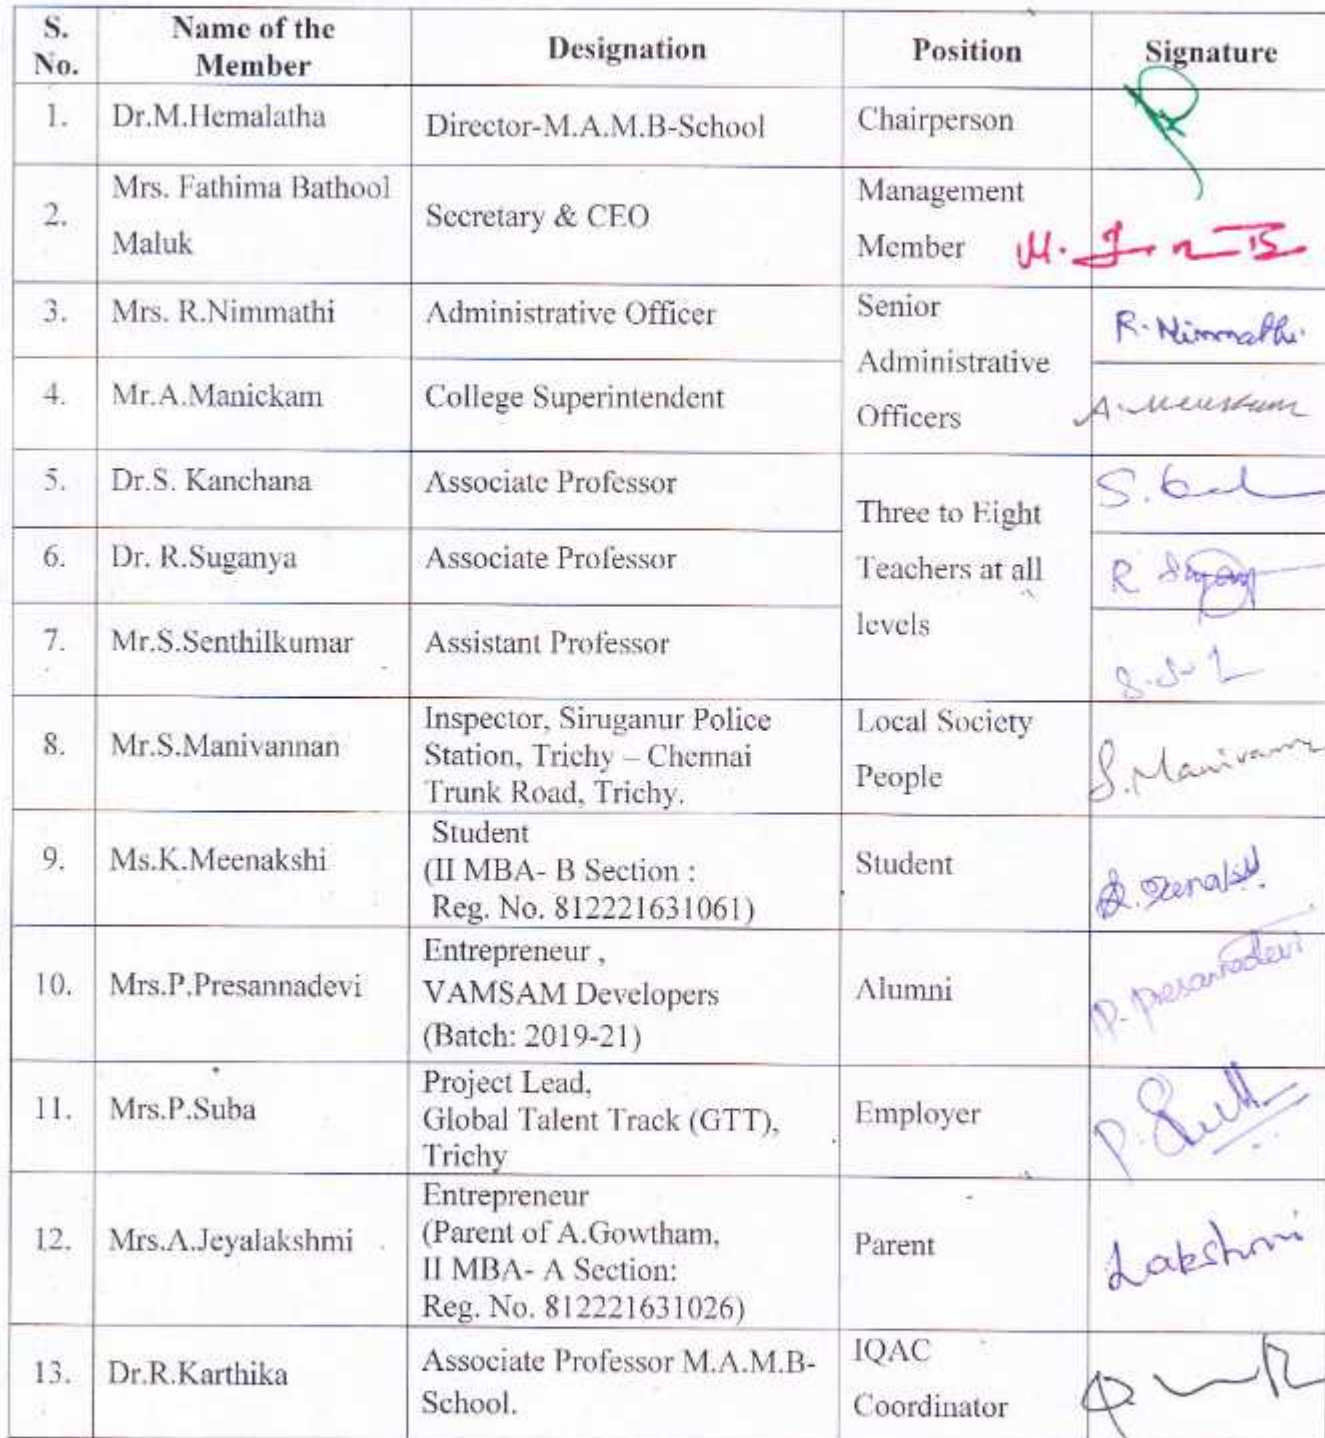 S. No. Name of the Member Designation Position Signature
1. Dr.M.Hemalatha Director-M.A.M.B-School Chairperson
2. Mrs. Fathima Bathool Maluk Secretary & CEO Management Member
3. Mrs. R.Nimmathi Administrative Officer Senior Administrative Officers R. Nimmathi
4. Mr.A.Manickam College Superintendent
5. Dr.S. Kanchana Associate Professor Three to Eight Teachers at all levels
6. Dr. R.Suganya Associate Professor
7. Mr.S.Senthilkumar Assistant Professor
8. Mr.S.Manivannan Inspector, Siruganur Police
Station, Trichy – Chennai
Trunk Road, Trichy. Local Society People S.Manivann
9. Ms.K.Meenakshi Student
(II MBA- B Section :
Reg. No. 812221631061) Student
10. Mrs.P.Presannadevi Entrepreneur ,
VAMSAM Developers
(Batch: 2019-21) Alumni P. Presannadevi
11. Mrs.P.Suba Project Lead,
Global Talent Track (GTT),
Trichy Employer
12. Mrs.A.Jeyalakshmi Entrepreneur
(Parent of A.Gowtham,
II MBA- A Section:
Reg. No. 812221631026) Parent Lakshmi
13. Dr.R.Karthika Associate Professor M.A.M.B-
School. IQAC Coordinator